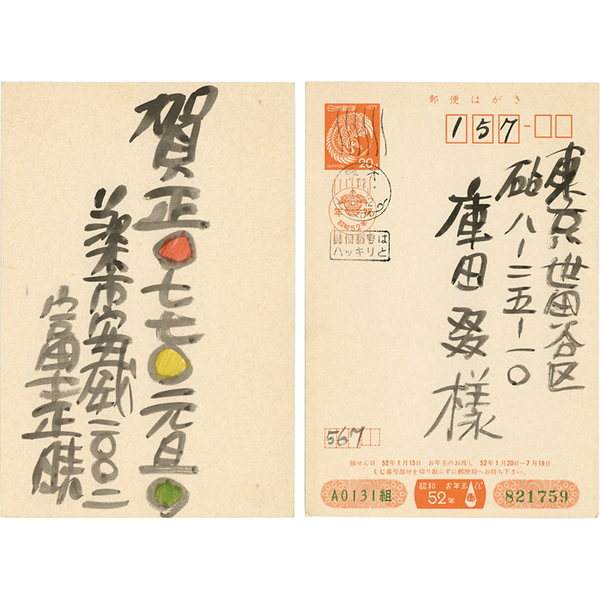 賀正〇七七〇元旦〇
茨木市安威一〇〇二
富士正晴
郵便はがき
157-
日本郵便
20
年賀
昭和52年
郵便番号は
ハッキリと
東京世田谷区
砧八ー二五ー一〇
庫田叕様
567
抽せん日 52年1月15日 お年玉のお渡し 52年1月20日―7月19日
くじ番号部分を切り取らずに郵便局へお持ち下さい。
A0131組
昭和 お年玉
52年
821759